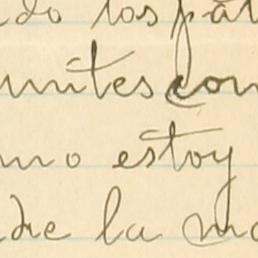 do los pát
unites con
mo estoy
dre la ma